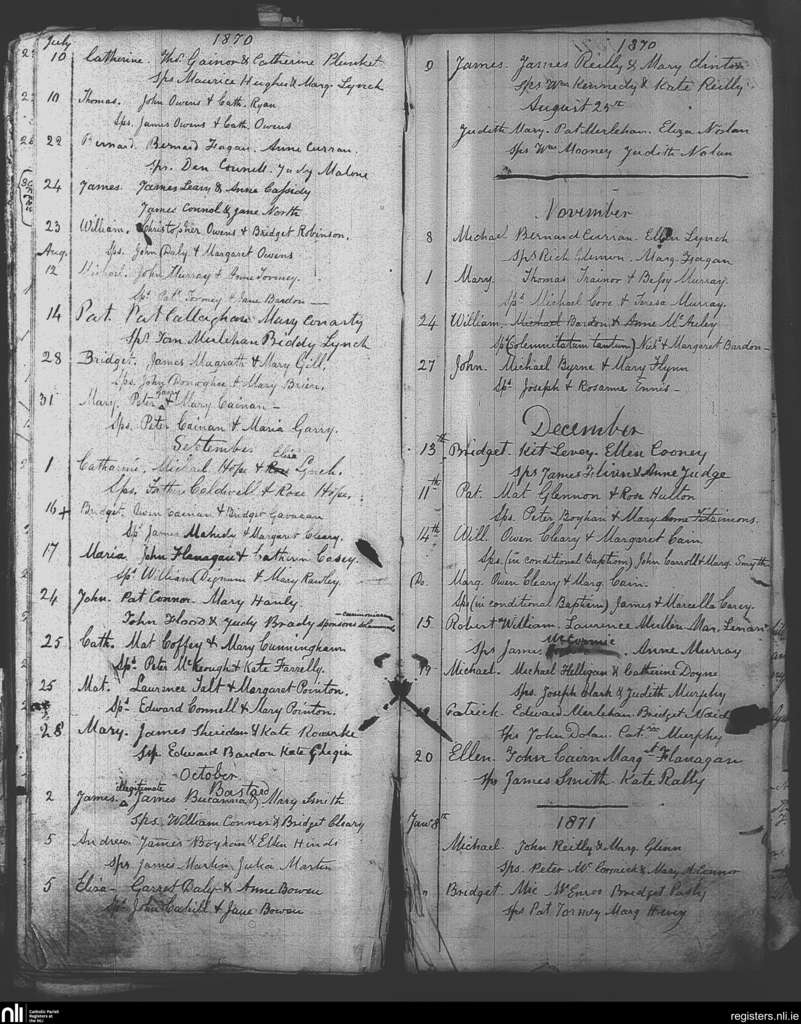 1870
July
10 Catherine. Ths. Gainor & Catherine Plunket
Sps Maurice Hughes & Marg. Lynch
10 Thomas. John Owens & Cath. Ryan
Sps. James Owens & Cath. Owens
22 Bernard. Bernard Fagan. Anne Curran.
Sps. Dan Connell. Judy Malone
24 James. James Leary & Anne Cassidy
James Connol & Jane North
23 William. Christopher Owens & Bridget Robinson.
Sps. John Daly & Margaret Owens
Aug.
12 Michael. John Murray & Anne Tormey.
Sps. Pat. Tormey & Jane Bardon —
14 Pat. Pat Callaghan Mary
Sps. Merlehan Biddy Lynch
28 Bridget. James Magrath & Mary Gill.
Sps. John Donoghoe & Mary Brien.
31 Mary. Peter & Mary Cainan —
Sps. Peter Cainan & Maria Garry.
September
1 Catharine. Michael Hope & Eliza Lynch.
Sps. Caldwell & Rose Hope.
16 + Bridget. Owen Cainan & Bridget
Sps. James & Margaret Cleary.
17 Maria John Flanagan & Cathern Casey.
Sps. William Degnam & Mary Rawley.
24 John. Pat Connor. Mary Hanly
John Flood & Judy Brady sponsors
25 Cath. Mat Coffey & Mary Cunningham
Sps. Peter McKeough & Kate Farrelly.
25 Mat. Laurence Talt & Margaret Pointon.
Sps. Edward Connell & Mary Pointon.
28 Mary. James Sheridan & Kate Rourke
Sps Edward Bardon Kate
October
illegitimate Bastard
2 James. James & Mary Smith
Sps. William Conner & Bridget Cleary
5 Andrew James Boylan & Ellen Hinds
Sps. James Martin Julia Martin
5 Eliza — Garret Daly & Anne Bowen
Sps. John Cahill & Jane Bowen
1870
9 James. James Reilly & Mary Clinton
Sps Wm Kennedy & Kate Reilly
August 25th
Judith Mary. Pat Merlehan. Eliza Nolan
Sps Wm Mooney Judith Nolan
November
8 Michael Bernard Curran. Ellen Lynch
Sps Rich Glennon. Marg. Fagan
1 Mary. Thomas Trainor & Bessy Murray.
Sps. Michael Core & Teresa Murray.
24 William. Michael Bardon & Anne McAuley
Sps (Solemnitatum tantum) Nichs & Margaret Bardon —
27 John. Michael Byrne & Mary Flynn
Sps. Joseph & Rosanne Ennis —
December
13th Bridget. Kit Levey. Ellen Cooney
Sps James & Anne Judge
11th Pat. Mat Glennon & Rose Hulton
Sps. Peter Boyhan & Mary Anne Fitzsimons.
14th Will. Owen Cleary & Margaret Cain
Sps. (in conditional Baptism) John Carroll & Marg. Smyth
Do. Marg. Owen Cleary & Marg. Cain.
Sps (in conditional Baptism) James & Marcella Carey.
15 Robert William. Laurence Mullen Mar. Linam
Sps James McCormic. Anne Murray
19 Michael. Michael Helligan & Catherine Doyne
Sps. Joseph Clark & Judith Murphy
19 Patrick Edward Merlehan. Bridget
Sps John Dolan. Catne Murphy
20 Ellen. John Cairn Margt Flanagan
Sps James Smith Kate Rally
1871
Jany 8th
Michael John Reilly & Marg. Glenn
Sps. Peter McCormick & Mary McConnor
" Bridget. Mic McEnroe Bridget
Sps Pat Tormey Marg
nli Catholic Parish Registers at the NLI
registers.nli.ie